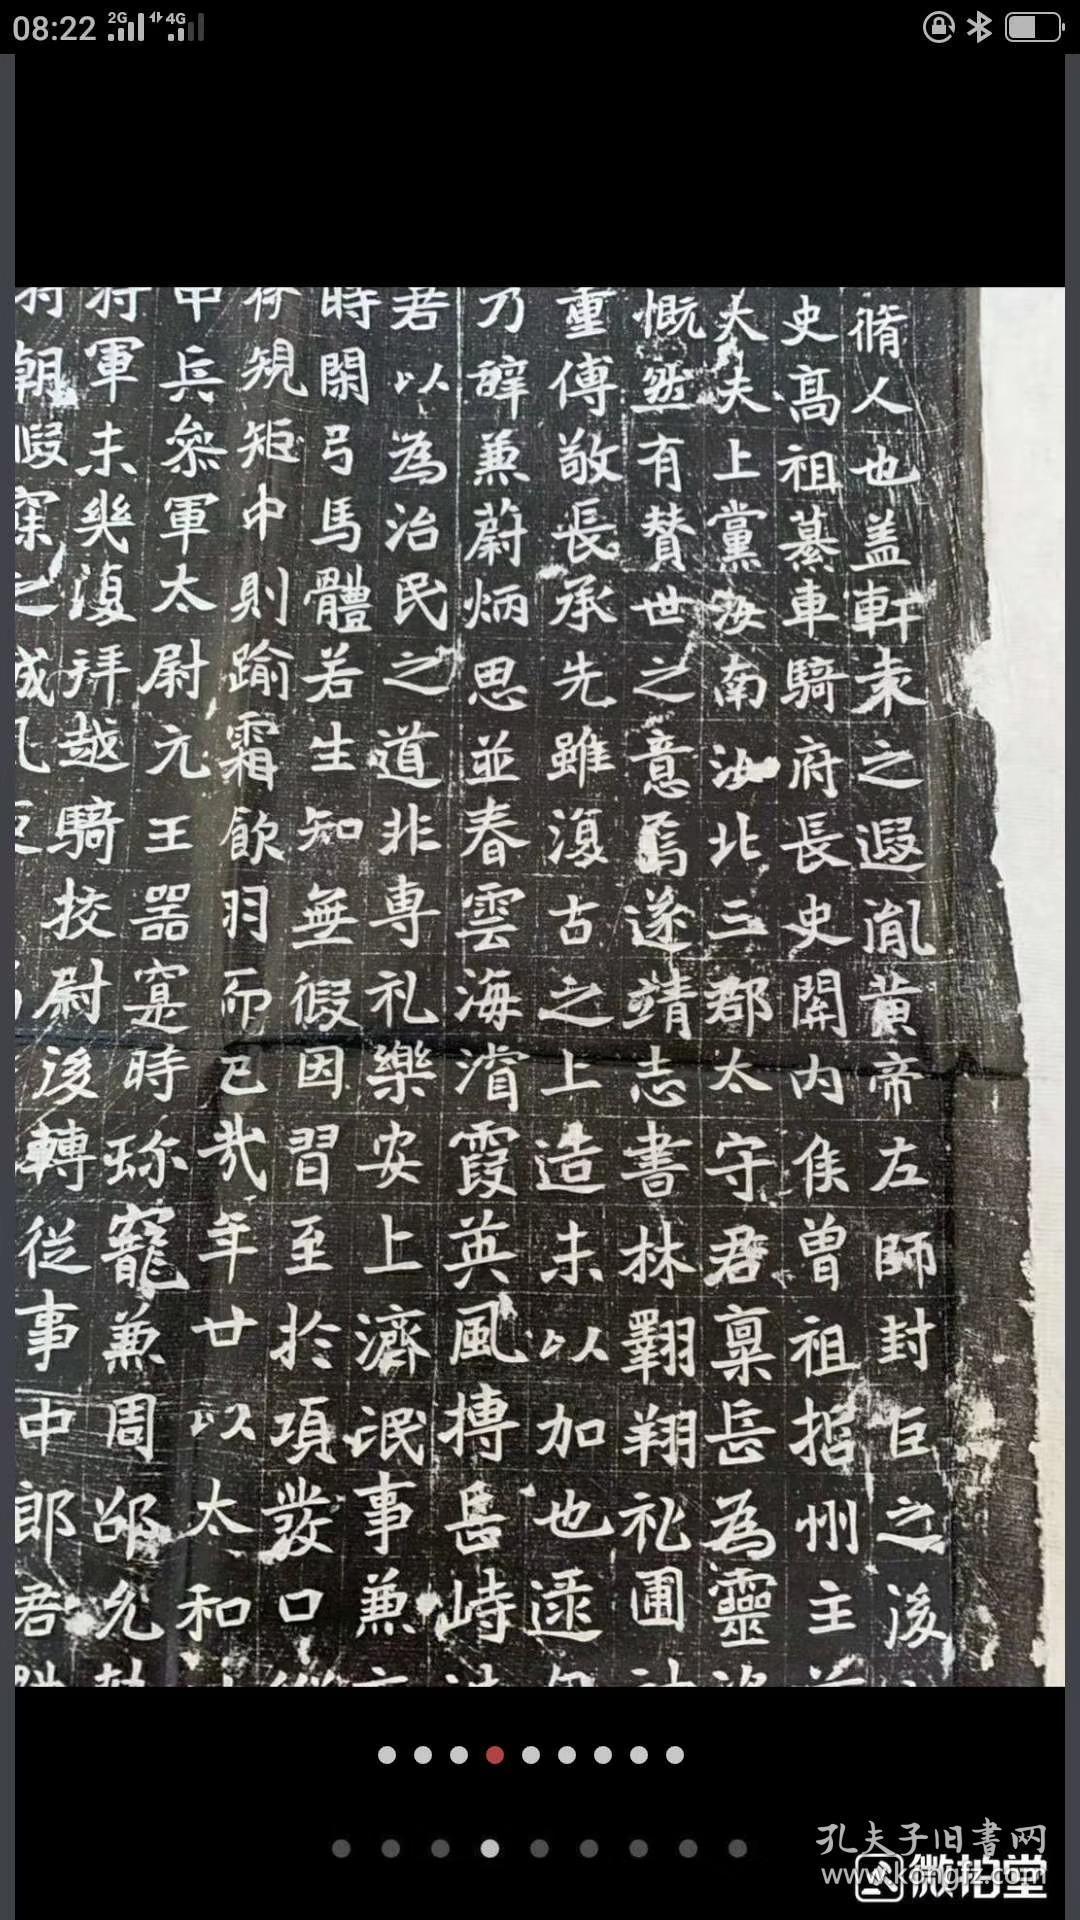 08:22
2G
4G
脩人也盖軒袁之遐胤黄帝左師封巨之後
史高祖綦車騎府長史関内侯曾祖招州主
大夫上黨汝南汝北三郡太守君稟岳為靈
慨然有賛世之意焉遂靖志書林翱翔礼圃
重傅敬長承先雖復古之上造未以加也逯
乃辭兼蔚炳思並春雲海濱霞英風摶岳峙
君以為治民之道非專礼樂安上濟氓事兼
時閑弓馬體若生知無假因習至於項發口
符規矩中則踰霜飲羽而已哉年廿以太和
中兵叅軍太尉元王噐寔時珎寵兼周邵允
将軍未幾復拜越騎挍尉後轉從事中郎君
朝假
孔夫子旧書网
www.kongfz.com
微拍堂